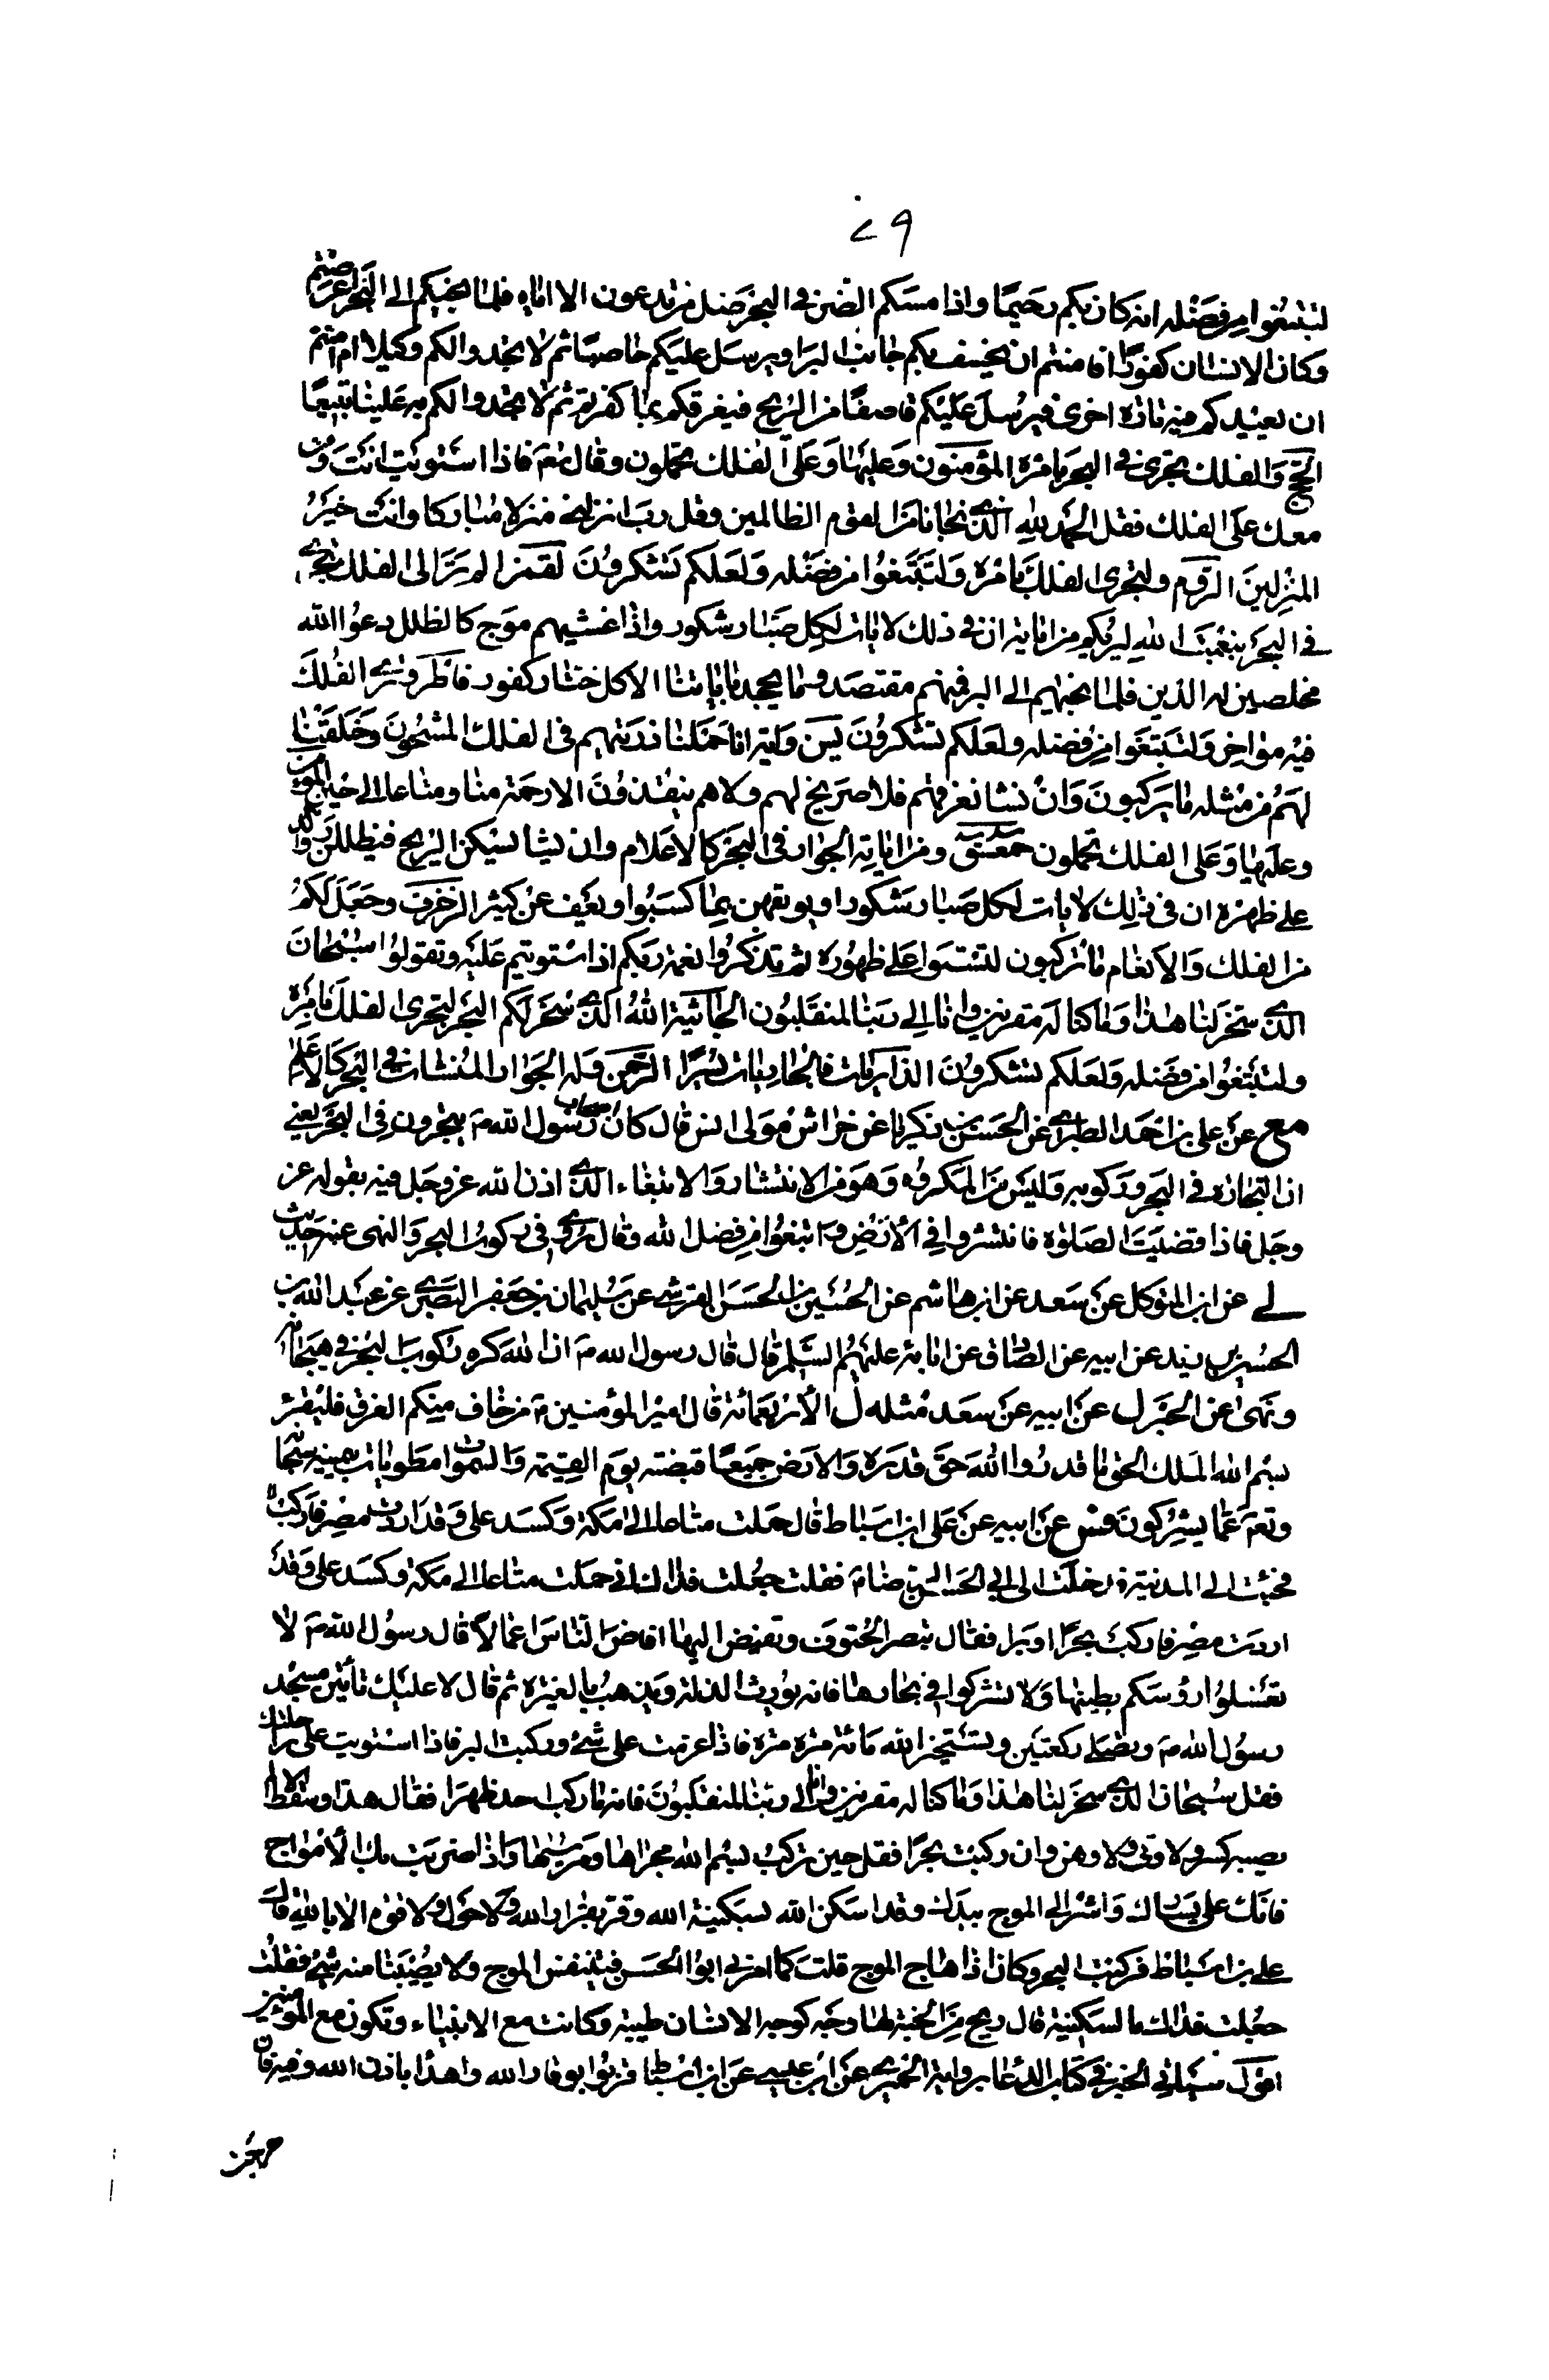 ٧٩
لتبتغوا من فضله انه كان بكم رحيما واذا مسكم الضر في البحر ضل من تدعون الا اياه فلما نجيكم الى البر اعرضتم
وكان الانسان كفورا افامنتم ان يخسف بكم جانب البر او يرسل عليكم حاصبا ثم لا تجدوا لكم وكيلا ام امنتم
ان يعيدكم فيه تارة اخرى فيرسل عليكم قاصفا من الريح فيغرقكم بما كفرتم ثم لا تجدوا لكم به علينا تبيعا
الحج والفلك تجرى في البحر بامره المؤمنون وعليها وعلى الفلك تحملون وقال تع فاذا استويت انت ومن
معك على الفلك فقل الحمد لله الذي نجانا من القوم الظالمين وقل رب انزلني منزلا مباركا وانت خير
المنزلين الروم ولتجرى الفلك بامره ولتبتغوا من فضله ولعلكم تشكرون لقمن الم تر ان الفلك تجري
في البحر بنعمت الله ليريكم من اياته ان في ذلك لايات لكل صبار شكور واذا غشيهم موج كالظلل دعوا الله
مخلصين له الدين فلما نجيهم الى البر فمنهم مقتصد وما يجحد باياتنا الا كل ختار كفور فاطر وترى الفلك
فيه مواخر ولتبتغوا من فضله ولعلكم تشكرون يس واية لهم انا حملنا ذريتهم في الفلك المشحون وخلقنا
لهم من مثله ما يركبون وان نشا نغرقهم فلا صريخ لهم ولا هم ينقذون الا رحمة منا ومتاعا الى حين المؤمن
وعليها وعلى الفلك تحملون حمعسق ومن اياته الجوار في البحر كالاعلام وان يشا يسكن الريح فيظللن رواكد
على ظهره ان في ذلك لايات لكل صبار شكور او يوبقهن بما كسبوا ويعف عن كثير الزخرف وجعل لكم
من الفلك والانعام ما تركبون لتستوا على ظهوره ثم تذكروا نعمة ربكم اذا استويتم عليه وتقولوا سبحان
الذي سخر لنا هذا وما كنا له مقرنين وانا الى ربنا لمنقلبون الجاثية الله الذي سخر لكم البحر لتجرى الفلك بامره
ولتبتغوا من فضله ولعلكم تشكرون الذاريات فالجاريات يسرا الرحمن وله الجوار المنشات في البحر كالاعلام
مع عن علي بن احمد الطبري عن الحسن بن زكريا عن خراش مولى انس قال كان اصحاب رسول الله ص يتجرون في البحر يعني
ان التجارة في البحر وركوبه وليس من المكروه وهو من الانتشار والابتغاء الذي اذن الله عز وجل فيه بقوله عز
وجل فاذا قضيت الصلوة فانتشروا في الارض وابتغوا من فضل الله وقال مروي في ركوب البحر والنهى عنه حديث
لي عن ابن المتوكل عن سعد عن ابن هاشم عن الحسين بن الحسن القرشي عن سليمان بن جعفر البصري عن عبد الله بن
الحسين بن زيد عن ابيه عن الصادق عن ابائه عليهم السلم قال قال رسول الله ص ان الله كره ركوب البحر في هيجانه
ونهى عن الخبر ل عن ابيه عن سعد مثله ل الاربعمائة قال امير المؤمنين ع من خاف منكم الغرق فليقرء
بسم الله الملك الحق ما قدروا الله حق قدره والارض جميعا قبضته يوم القيمة والسموات مطويات بيمينه سبحانه
وتع عما يشركون فس عن ابيه عن على بن اسباط قال حملت متاعا الى مكة وكسد على وقد اردت مصر فاركب
فجئت الى المدينة فدخلت الى ابي الحسن الرضا ع فقلت جعلت فداك اني حملت متاعا الى مكة وكسد على وقد
اردت مصر فاركب بحرا او برا فقال بمصر الحتوف وتقيض اليها اقاض الناس اعمارا قال رسول الله ص لا
تغسلوا رؤسكم بطينها ولا تشركوا في فخارها فانه يورث الذلة ويذهب بالغيرة ثم قال لا عليك تاتي مسجد
رسول الله ص وتصلى ركعتين وتستخير الله مائة مرة مرة فاذا عزمت على شئ وركبت البر فاذا استويت على راحلتك
فقل سبحان الذي سخر لنا هذا وما كنا له مقرنين وانا الى ربنا لمنقلبون فانه ما ركب احد ظهرا فقال هذا وسقط الا
يصبه كسر ولا وثى ولا وهن وان ركبت بحرا فقل حين تركب بسم الله مجراها ومرسيها واذا ضربت بك الامواج
فاتك على يسارك واشر الى الموج بيدك وقل اسكن الله بسكينة الله وقر بقرار الله ولا حول ولا قوة الا بالله قال
علي بن اسباط فركبت البحر وكان اذا هاج الموج قلت كما امرني ابو الحسن فيتنفس الموج ولا يصيبنا منه شئ فقلت
جعلت فداك ما السكينة قال ريح من الجنة لها وجه كوجه الانسان طيبة وكانت مع الانبياء وتكون مع المؤمنين
اقول سيأتي الخبر في كتاب الدعا برواية الحميري عن ابن عيسى عن ابن اسباط قربوا بوقار الله واهدا باذن الله وفيه قال